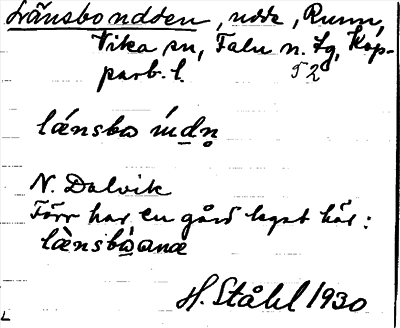 Länsbondden, udde, Runn,
Vika sn, Falu n. tg, Kop-
parb. l. 52
lánsbo ų́dn̥
N. Dalvik
Förr har en gård legat här:
lànsbòana
H. Ståhl 1930